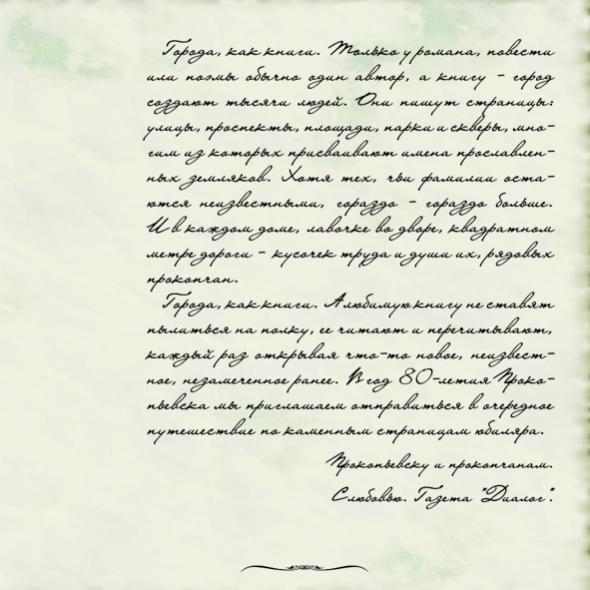 Города, как книги. Только у романа, повести
или поэмы обычно один автор, а книгу - город
создают тысячи людей. Они пишут страницы:
улицы, проспекты, площади, парки и скверы, мно-
гим из которых присваивают имена прославлен-
ных земляков. Хотя тех, чьи фамилии оста-
ются неизвестными, гораздо - гораздо больше.
И в каждом доме, лавочке во дворе, квадратном
метре дороги - кусочек труда и души их, рядовых
прокопчан.
Города, как книги. А любимую книгу не ставят
пылиться на полку, ее читают и перечитывают,
каждый раз открывая что-то новое, неизвест-
ное, незамеченное ранее. В год 80-летия Проко-
пьевска мы приглашаем отправиться в очередное
путешествие по каменным страницам юбиляра.
Прокопьевску и прокопчанам.
С любовью. Газета "Диалог".